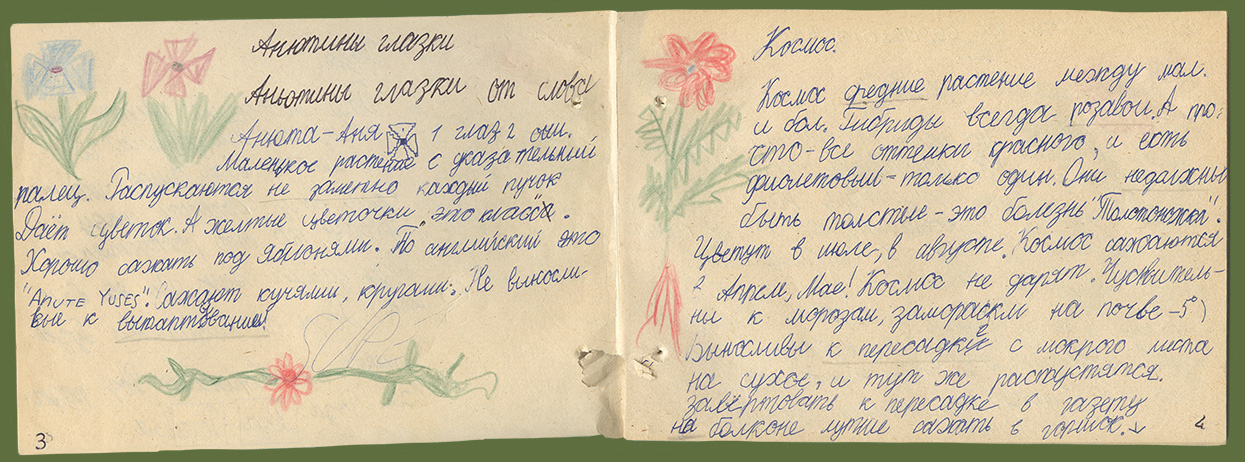 Анютины глазки
Анютины глазки от слова
Анюта-Аня 1 глаз 2 оши.
Маленцкое растение с указательний
палец. Распускаются не заметно каждий пучок
Даёт цветок. А желтые цветочки "это класс".
Хорошо сажать под Яблонями. По английский это
"Anute Yuses". Сажают кучями, кругами. Не выносли-
вые к вытаптованию!
3
Космос.
Космос средние растение между мал.
и бол. Гибриды всегда розавои. А про-
сто-все оттенки красного, и есть
фиолетовый-только один. Они недалжны
быть толстые-это болезнь "Толстоножка".
Цветут в июле, в августе. Космос сажаются
в Апреле, Мае! Космос не дарят. Чуствитель-
ны к морозам, замораскм на почве -5°)
Выносливы к пересадке с мокрого места
на сухое, и тут же распустятся.
завёртовать к пересадке в газету
на болконе лутше сажать в горшок.↓
4